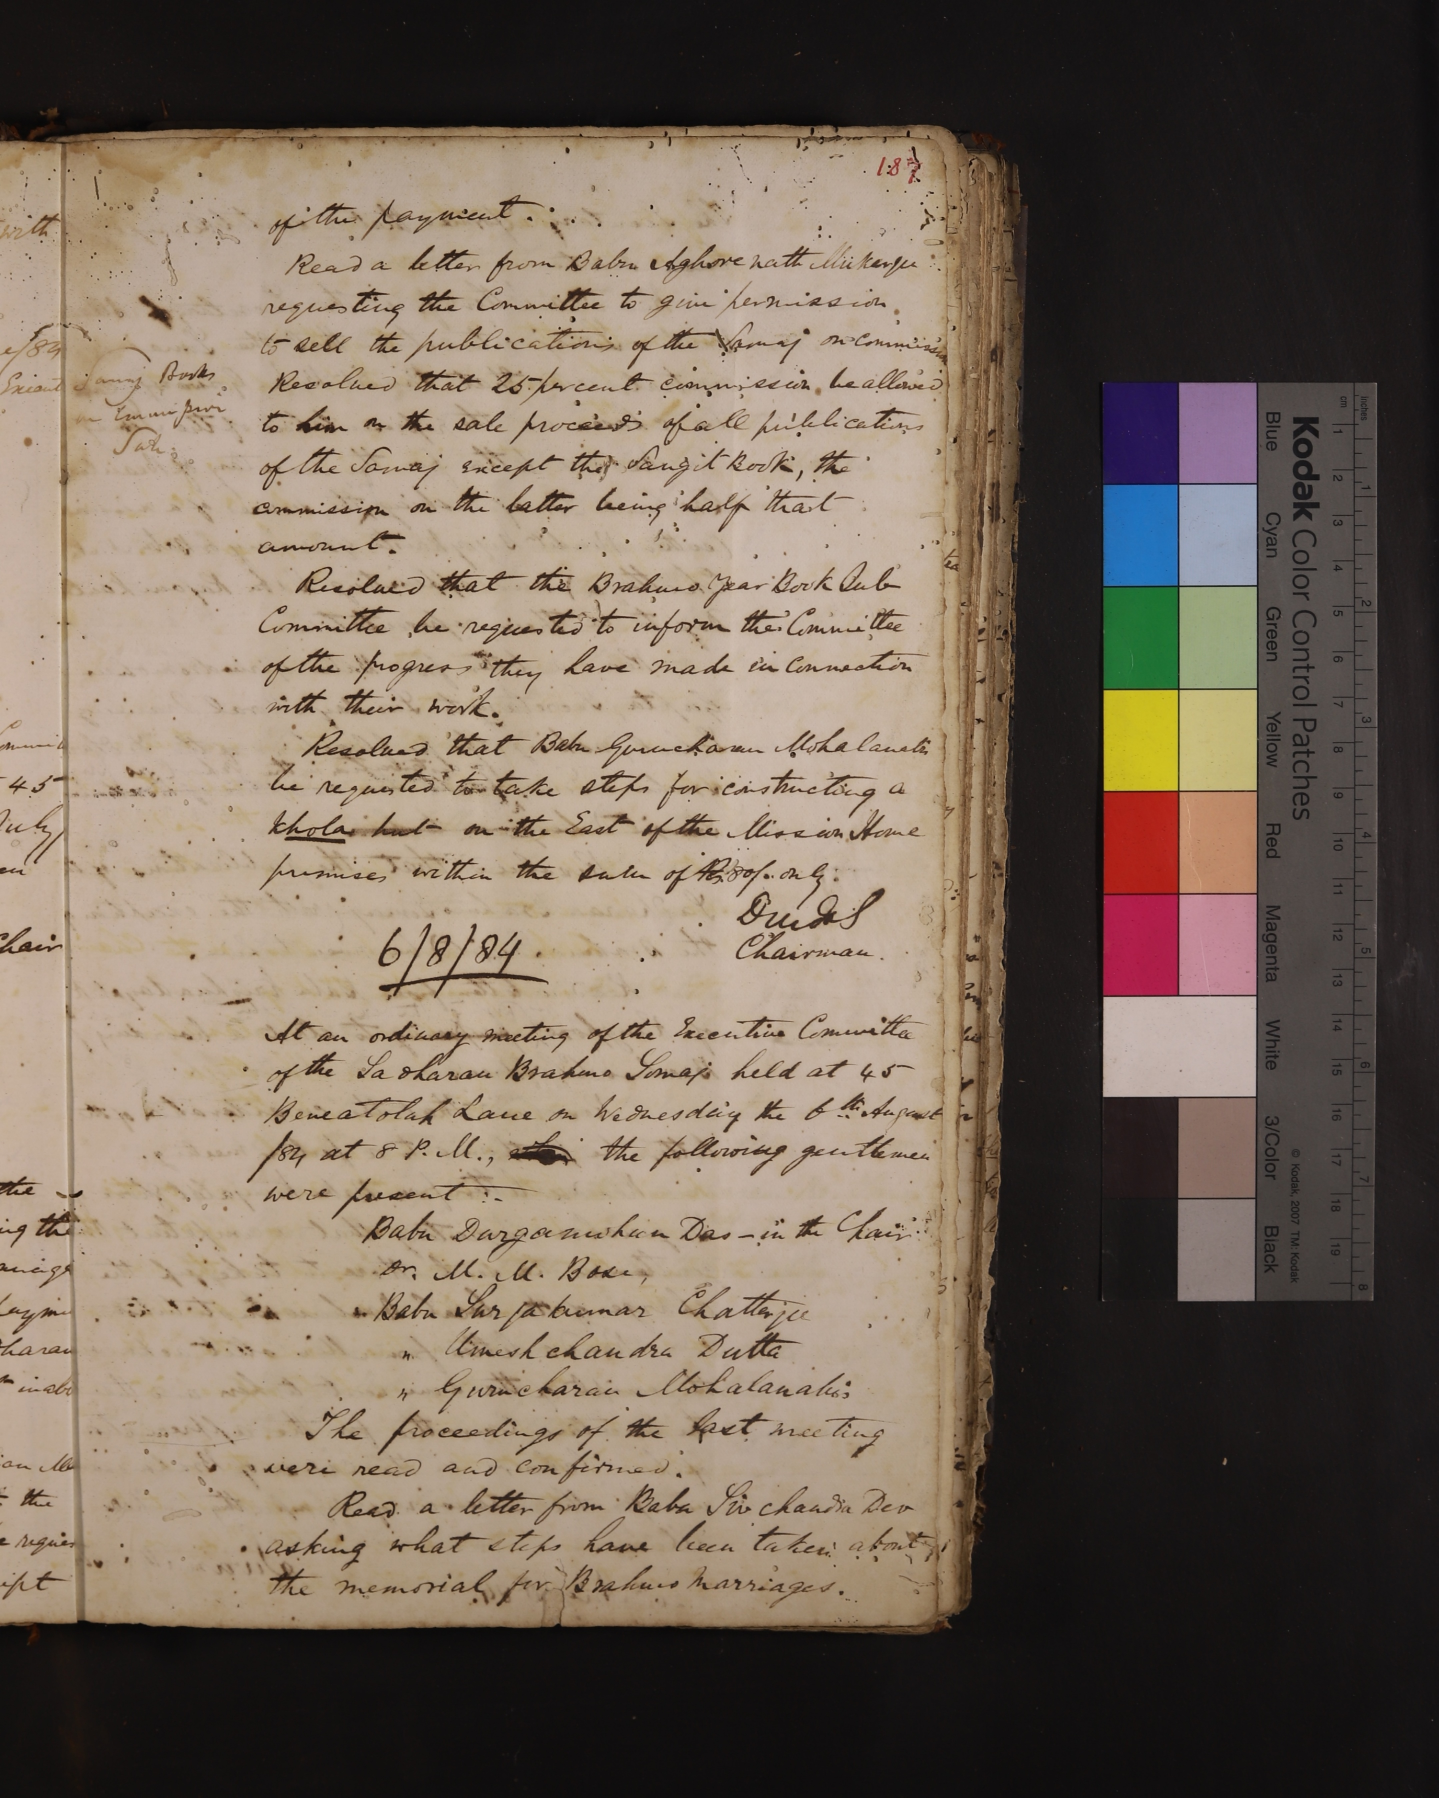 187
of the payment.
Read a letter from Babu Aghore nath Mukerjee
requesting the Committee to give permission
to sell the publications of the Samaj on commission
Resolved that 25 percent commission be allowed
to him on the sale proceeds of all publications
of the Samaj except the Sangit Book, the
commission on the latter being half that
amount.
Resolved that the Brahmo Year Book Sub
Committee be requested to inform the Committee
of the progress they have made in connection
with their work.
Resolved that Babu Gurucharan Mohalanabis
be requested to take steps for constructing a
khola hut on the East of the Mission Home
premises within the sum of Rs 80/- only.
Chairman.
6/8/84
At an ordinary meeting of the Executive Committee
of the Sadharan Brahmo Somaj held at 45
Beneatolah Lane on Wednesday the 6th August
/84 at 8 P.M., the following gentlemen
were present :-
Babu Durgamohun Das - in the Chair
Dr. M. M. Bose,
Babu Surjakumar Chatterjee
" Umeshchandra Dutta
" Gurucharan Mohalanabis
The proceedings of the last meeting
were read and confirmed.
Read a letter from Babu Siv chandra Dev
asking what steps have been taken about
the memorial for Brahmo Marriages.
Books
with
45
July
Chair
the
ing the
the
Kodak Color Control Patches
Blue Cyan Green Yellow Red Magenta White 3/Color Black
© Kodak, 2007 TM: Kodak
cm 1 2 3 4 5 6 7 8 9 10 11 12 13 14 15 16 17 18 19
inches 1 2 3 4 5 6 7 8